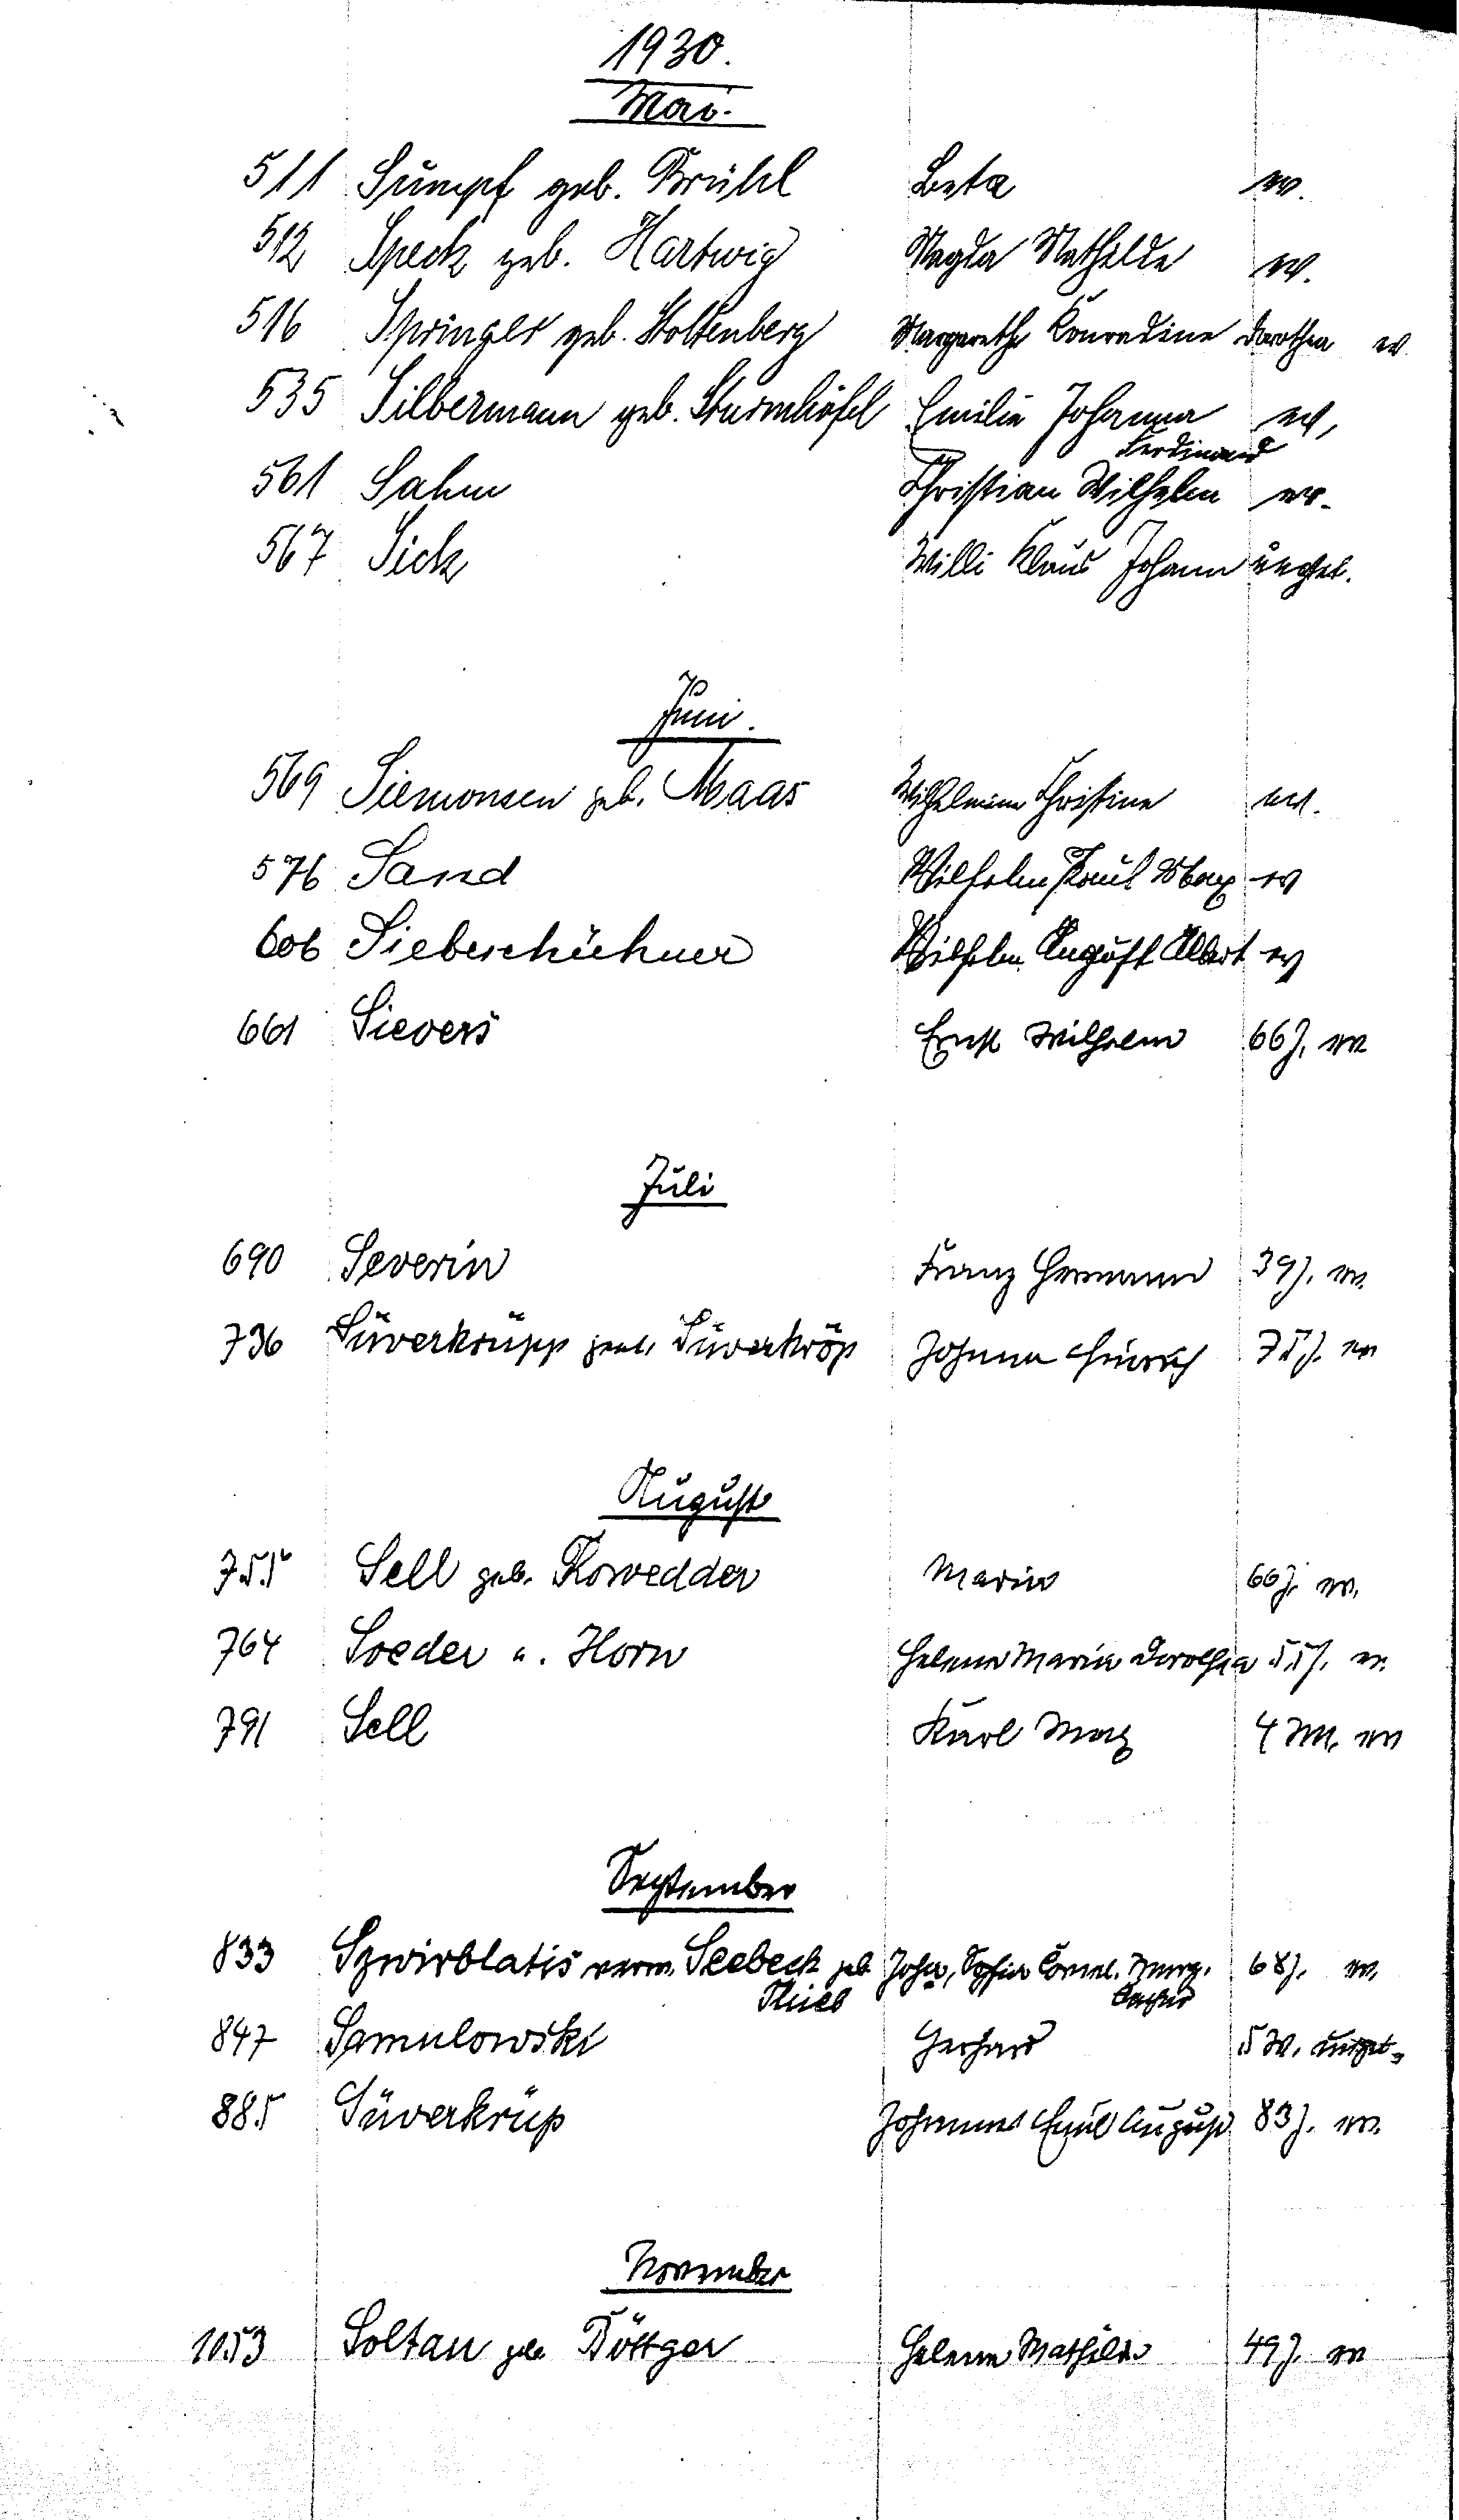 1930.
Mai.
511 Sumpf geb. Brühl Beta w.
512 Speck geb. Hartwig Magda Mathilde w.
516 Springer geb. Stoltenberg Margarethe Konradine Dorothea w.
535 Silbermann geb. Sturmhöfel Emilie Johanna w,
Ferdinand
561 Sahm Christian Wilhelm w.
567 Sick Willi Klaus Johann unget.
Juni.
569 Siemonsen geb. Maas Wilhelmine Christine w.
576 Sand Wilhelm Paul Max
606 Siebeschuhner Wilhelm August Albert
661 Sievers Ernst Wilhelm 66 J.
Juli
690 Severin Franz Hermann 39 J.
736 Süverkrüpp gent. Süverkröp Johann Hinrich 75 J.
August
755 Sell geb. Rowedder Maria 66 J.
764 Soeder u. Horn Helene Maria Dorothea 55 J.
791 Sell Karl Max 4 M.
September
833 Szwirblatis verw. Seebeck geb Joha, Sophia Cornel. Marg. 68 J.
Thieß
847 Samulowski Gerhard 5 W. unget.
885 Süverkrüp Johannes Emil August 83 J.
November
1053 Soltau geb Böttger Helene Mathilde 49 J.